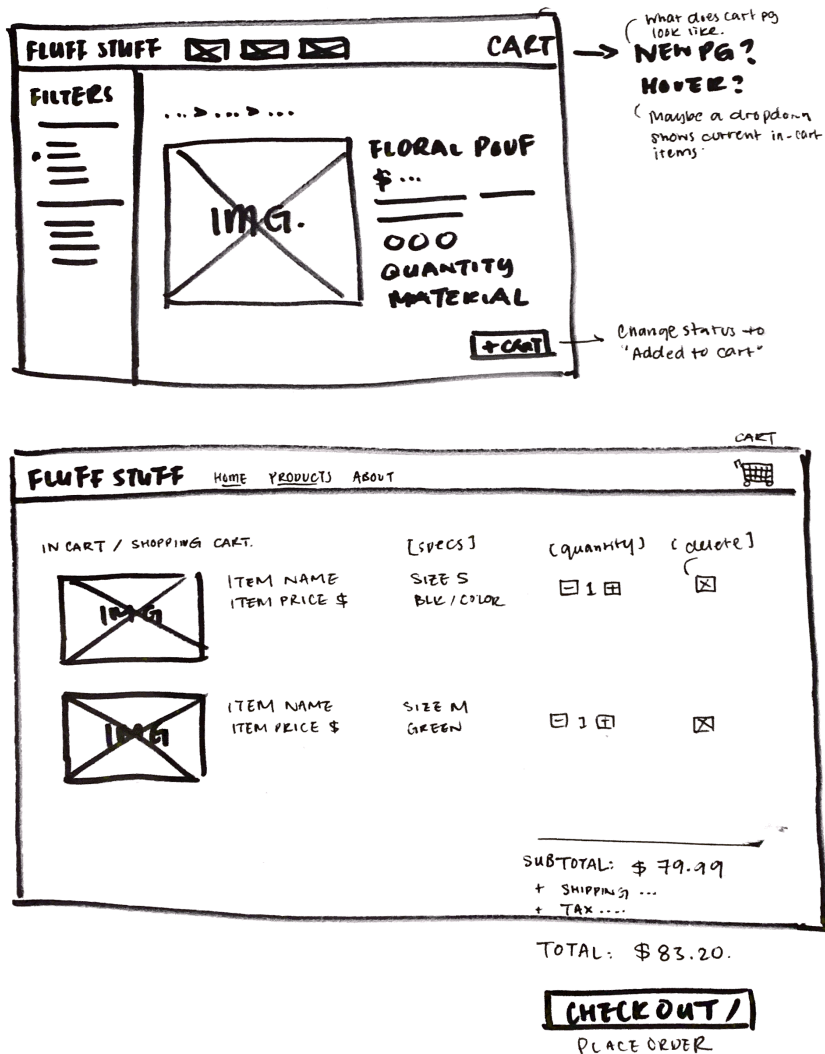 What does cart pg
look like.
FLUFF STUFF
CART
NEW PG?
HOVER?
FILTERS
Maybe a dropdown
shows current in-cart
items.
... > ... > ...
FLORAL POUF
$ ...
IMG.
QUANTITY
MATERIAL
+ CART
Change status to
"Added to cart"
CART
FLUFF STUFF HOME PRODUCTS ABOUT
IN CART / SHOPPING CART.
[specs]
[quantity]
[delete]
IMG
ITEM NAME
ITEM PRICE $
SIZE S
BLK / COLOR
- 1 +
X
IMG
ITEM NAME
ITEM PRICE $
SIZE M
GREEN
- 1 +
X
SUBTOTAL: $ 79.99
+ SHIPPING ...
+ TAX ....
TOTAL: $83.20.
CHECKOUT /
PLACE ORDER